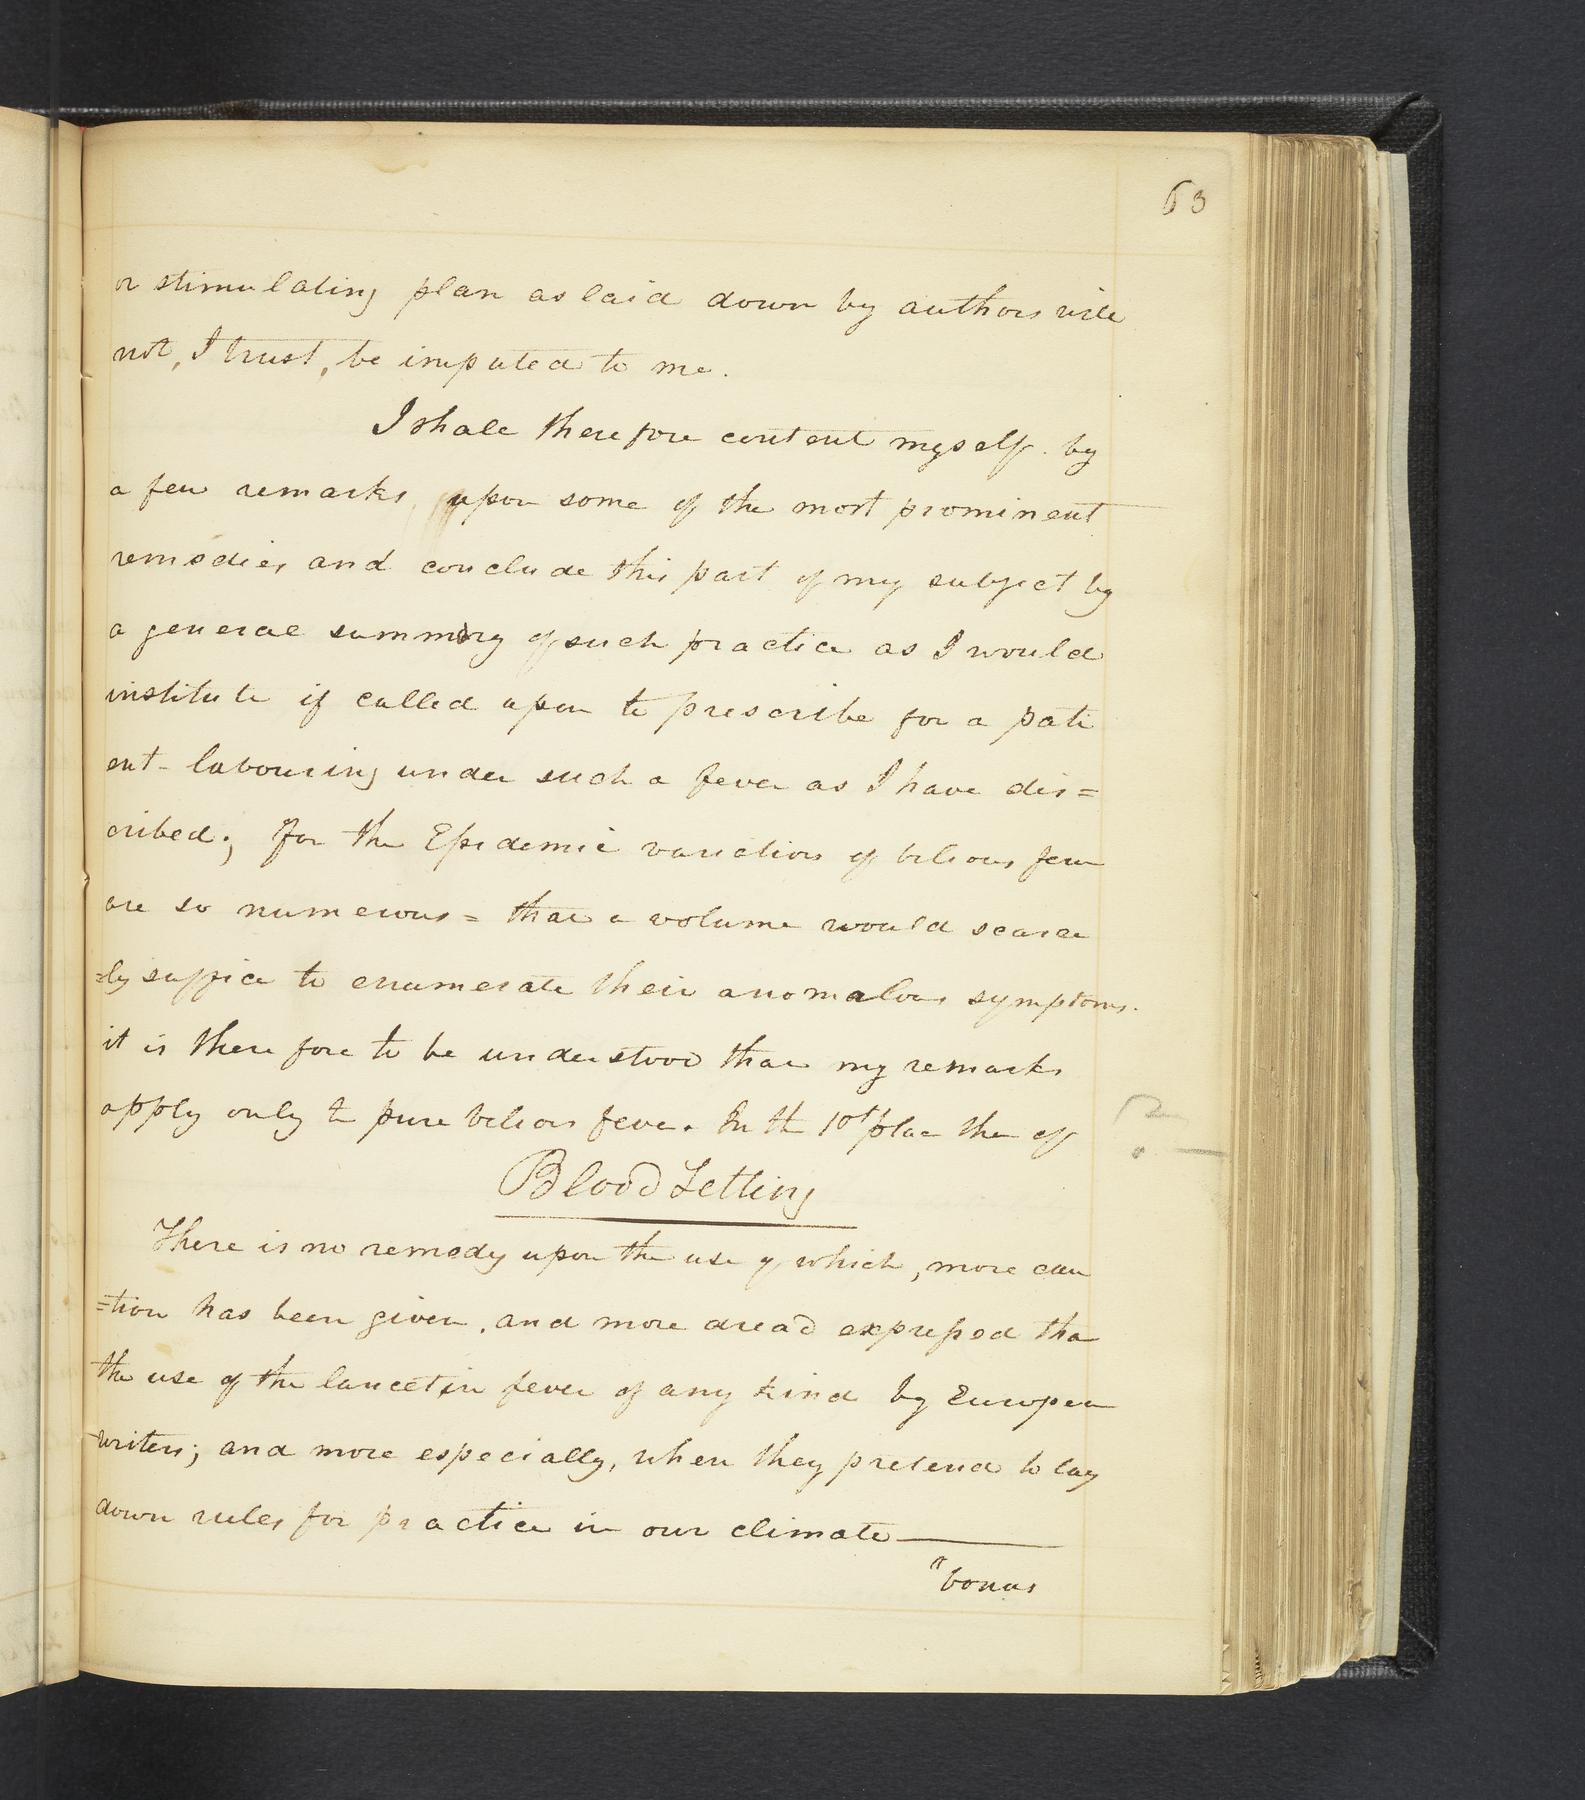 63
or stimulating plan as laid down by authors will
not, I trust, be imputed to me.
I shall therefore content myself by
a few remarks, upon some of the most prominent
remedies and conclude this part of my subject by
a general summary of such practice as I would
institute if called upon to prescribe for a pati
ent labouring under such a fever as I have dis=
cribed; for the Epidemic varieties of bilious fever
are so numerous = that a volume would scarce
=ly suffice to enumerate their anomalous symptoms.
it is therefore to be understood that my remarks
apply only to pure bilious fever. In the 1st place then of
Blood Letting
There is no remedy upon the use of which, more cau
=tion has been given, and more dread expressed than
the use of the lancet in fever of any kind by European
writers; and more especially, when they pretend to lay
down rules for practice in our climate
"bonus